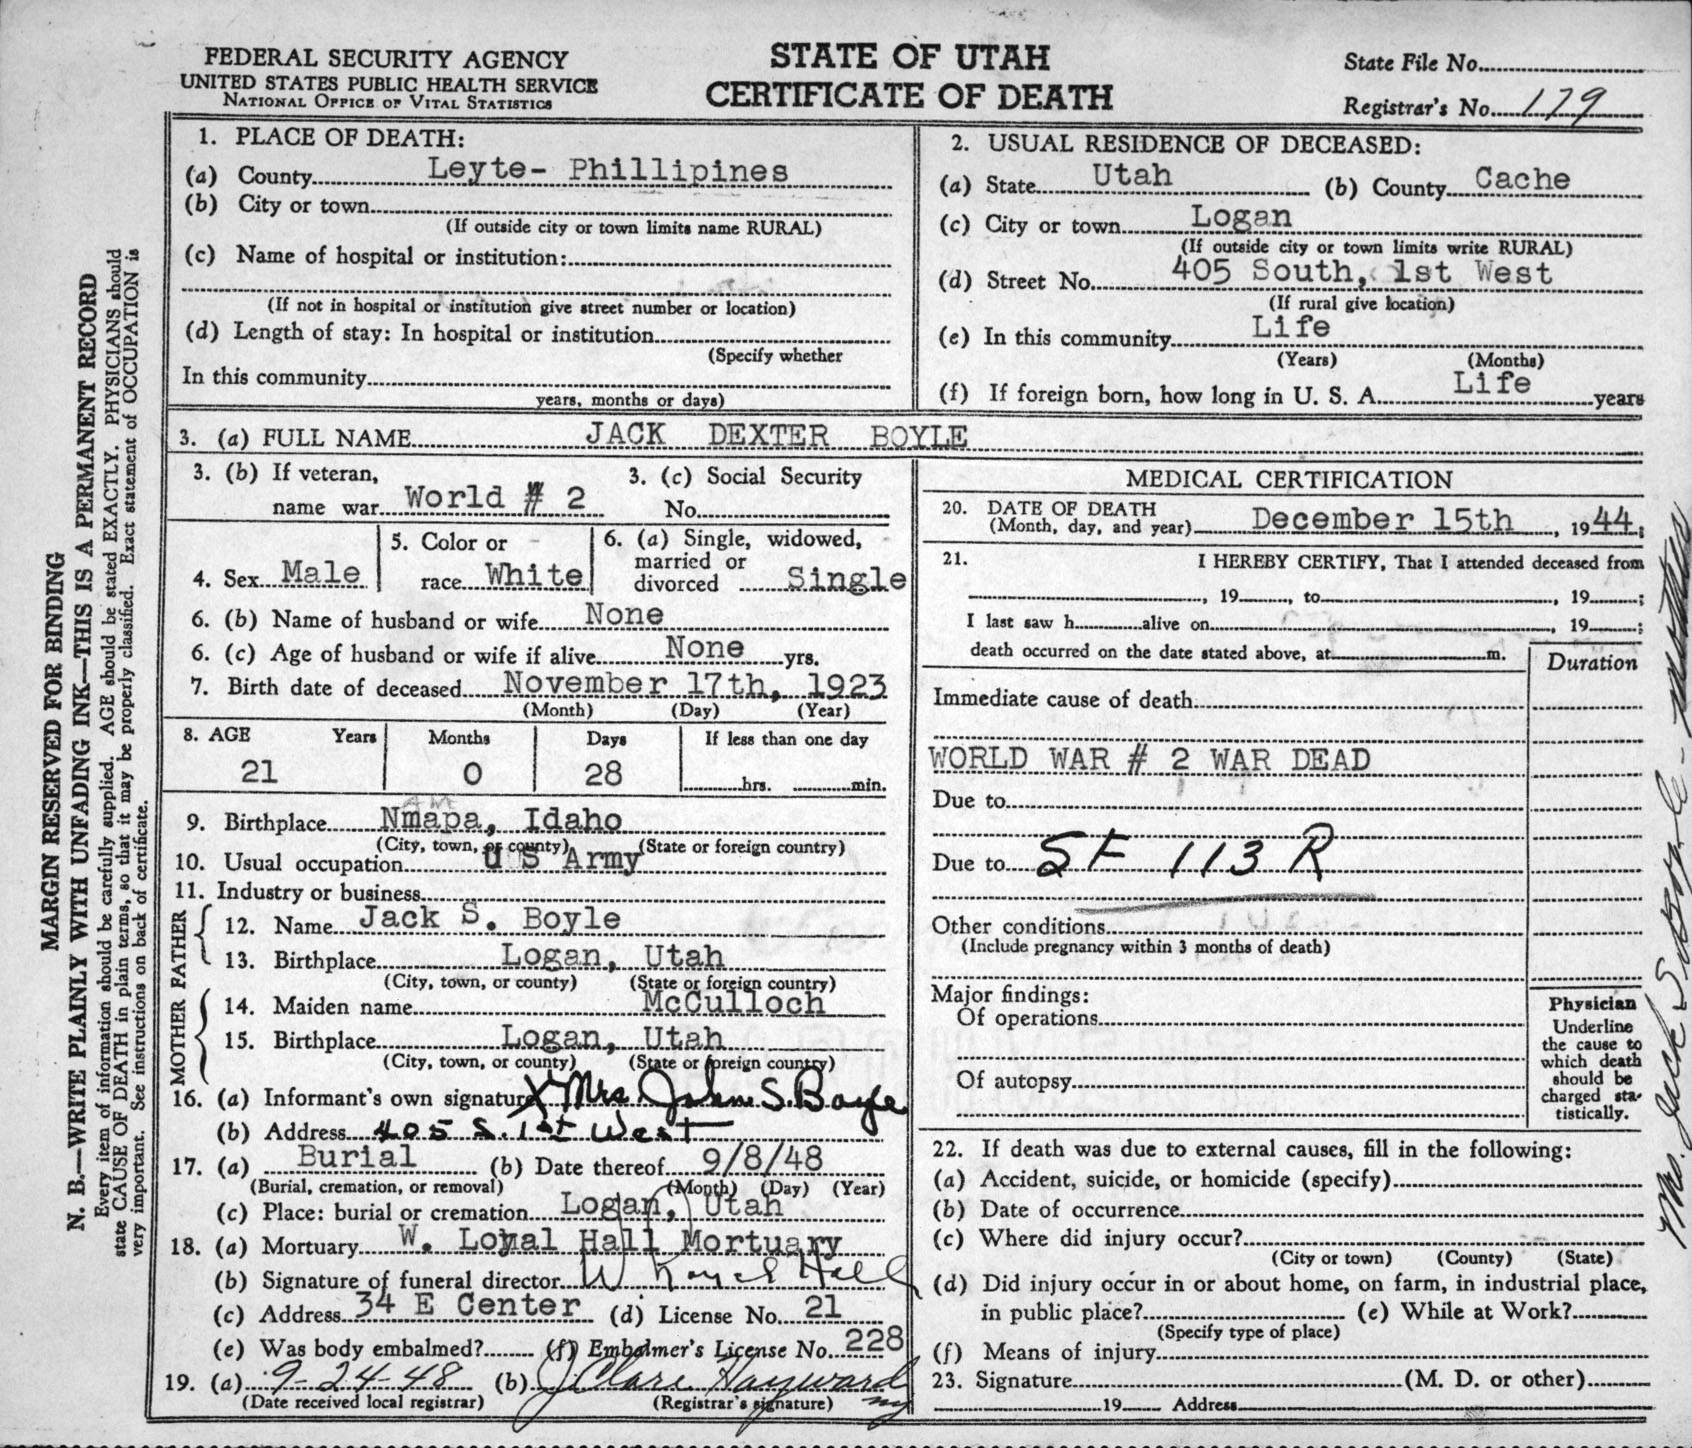 FEDERAL SECURITY AGENCY
UNITED STATES PUBLIC HEALTH SERVICE
NATIONAL OFFICE OF VITAL STATISTICS
STATE OF UTAH
CERTIFICATE OF DEATH
State File No.
Registrar's No. 179
1. PLACE OF DEATH:
(a) County Leyte- Phillipines
(b) City or town
(If outside city or town limits name RURAL)
(c) Name of hospital or institution:
(If not in hospital or institution give street number or location)
(d) Length of stay: In hospital or institution
(Specify whether
In this community
years, months or days)
2. USUAL RESIDENCE OF DECEASED:
(a) State Utah (b) County Cache
(c) City or town Logan
(If outside city or town limits write RURAL)
(d) Street No. 405 South, 1st West
(If rural give location)
(e) In this community Life
(Years) (Months)
(f) If foreign born, how long in U. S. A. Life years
3. (a) FULL NAME JACK DEXTER BOYLE
3. (b) If veteran,
name war World # 2
3. (c) Social Security
No.
4. Sex Male
5. Color or
race White
6. (a) Single, widowed,
married or
divorced Single
6. (b) Name of husband or wife None
6. (c) Age of husband or wife if alive None yrs.
7. Birth date of deceased November 17th, 1923
(Month) (Day) (Year)
8. AGE Years Months Days If less than one day
21 0 28 hrs. min.
AM
9. Birthplace Nmapa, Idaho
(City, town, or county) (State or foreign country)
10. Usual occupation U S Army
11. Industry or business
FATHER
12. Name Jack S. Boyle
13. Birthplace Logan, Utah
(City, town, or county) (State or foreign country)
MOTHER
14. Maiden name McCulloch
15. Birthplace Logan, Utah
(City, town, or county) (State or foreign country)
16. (a) Informant's own signature X Mrs John S. Boyle
(b) Address 405 S. 1st West
17. (a) Burial (b) Date thereof 9/8/48
(Burial, cremation, or removal) (Month) (Day) (Year)
(c) Place: burial or cremation Logan, Utah
18. (a) Mortuary W. Loyal Hall Mortuary
(b) Signature of funeral director W Loyal Hall
(c) Address 34 E Center (d) License No. 21
(e) Was body embalmed? (f) Embalmer's License No. 228
19. (a) 9-24-48 (b) J Clare Hayward
(Date received local registrar) (Registrar's signature)
MEDICAL CERTIFICATION
20. DATE OF DEATH
(Month, day, and year) December 15th, 1944;
21. I HEREBY CERTIFY, That I attended deceased from
, 19 , to , 19 ;
I last saw h alive on , 19 ;
death occurred on the date stated above, at m.
Duration
Immediate cause of death
WORLD WAR # 2 WAR DEAD
Due to
Due to SF 113 R
Other conditions
(Include pregnancy within 3 months of death)
Major findings:
Of operations
Of autopsy
Physician
Underline
the cause to
which death
should be
charged sta-
tistically.
22. If death was due to external causes, fill in the following:
(a) Accident, suicide, or homicide (specify)
(b) Date of occurrence
(c) Where did injury occur?
(City or town) (County) (State)
(d) Did injury occur in or about home, on farm, in industrial place,
in public place? (e) While at Work?
(Specify type of place)
(f) Means of injury
23. Signature (M. D. or other)
19 Address
MARGIN RESERVED FOR BINDING
N. B.—WRITE PLAINLY WITH UNFADING INK—THIS IS A PERMANENT RECORD
Every item of information should be carefully supplied. AGE should be stated EXACTLY. PHYSICIANS should
state CAUSE OF DEATH in plain terms, so that it may be properly classified. Exact statement of OCCUPATION is
very important. See instructions on back of certificate.
Mrs. Jack S. Boyle - mother